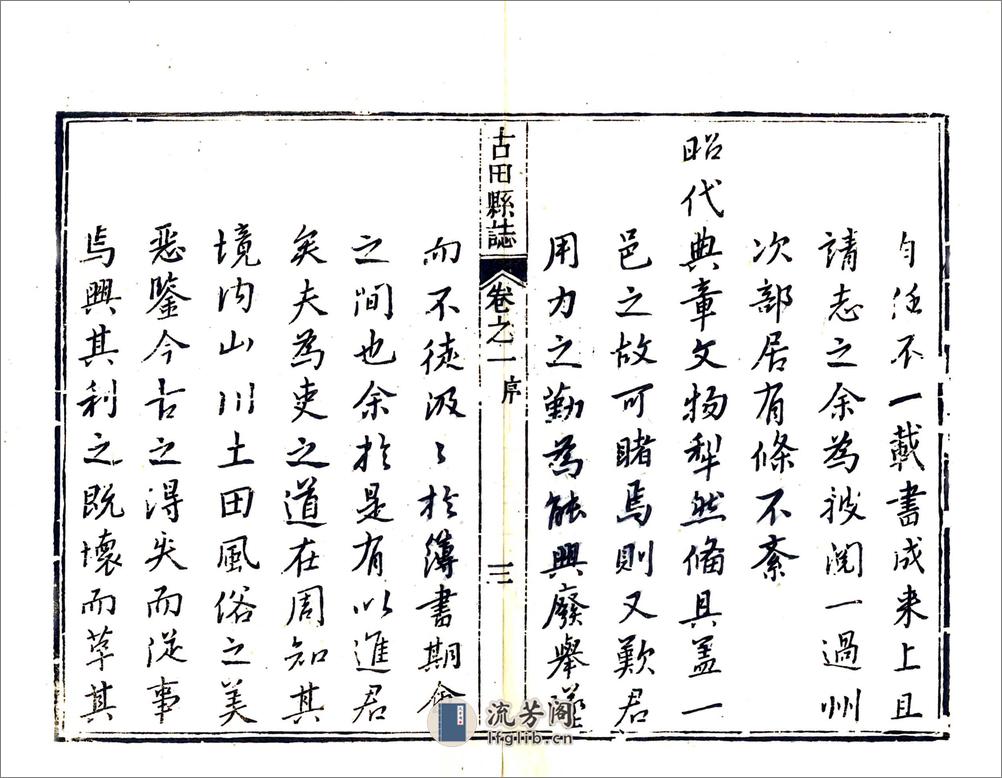 自任不一載書成来上且
請志之余為披閱一過州
次部居有條不紊
昭代典章文物犁然備具蓋一
邑之故可睹焉則又歎君
用力之勤為能興廢舉墜
古田縣誌
卷之一
序
三
而不徒汲〻於簿書期會
之間也余於是有以進君
矣夫為吏之道在周知其
境內山川土田風俗之美
惡鑒今古之得失而従事
焉興其利之既壞而革其
流芳阁
lfglib.cn